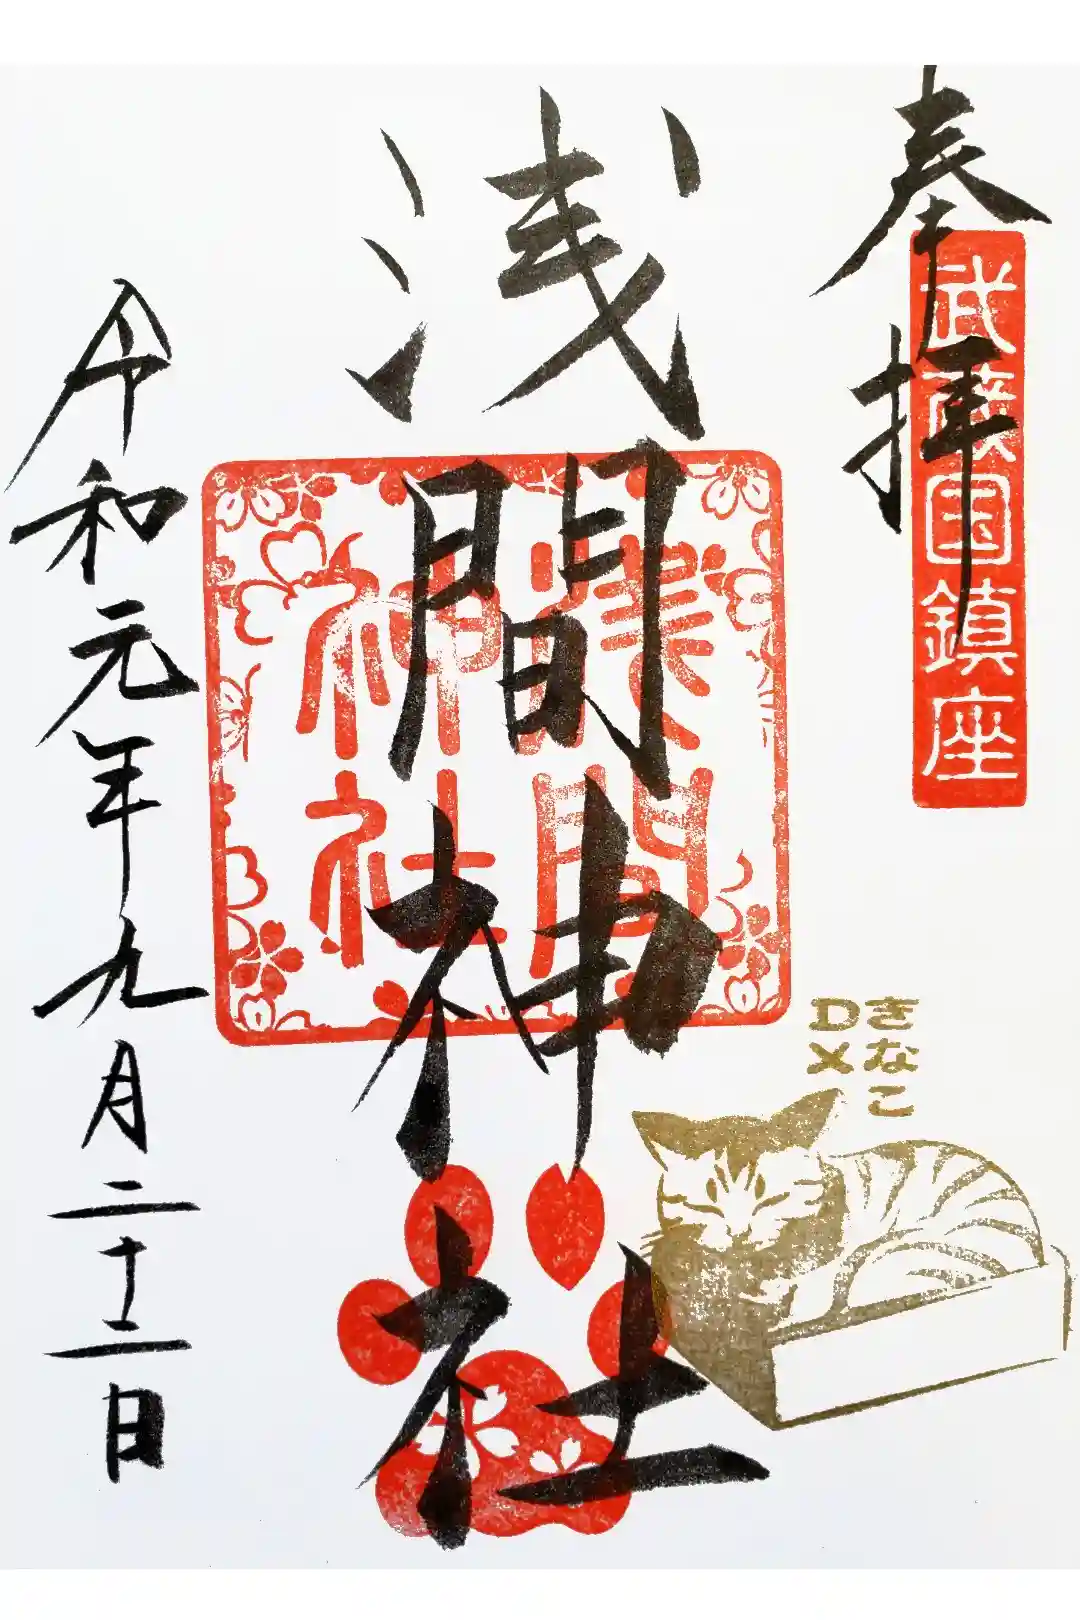 奉拝
武蔵国鎮座
浅間神社
浅間
神社
きなこ
DX
令和元年九月二十二日